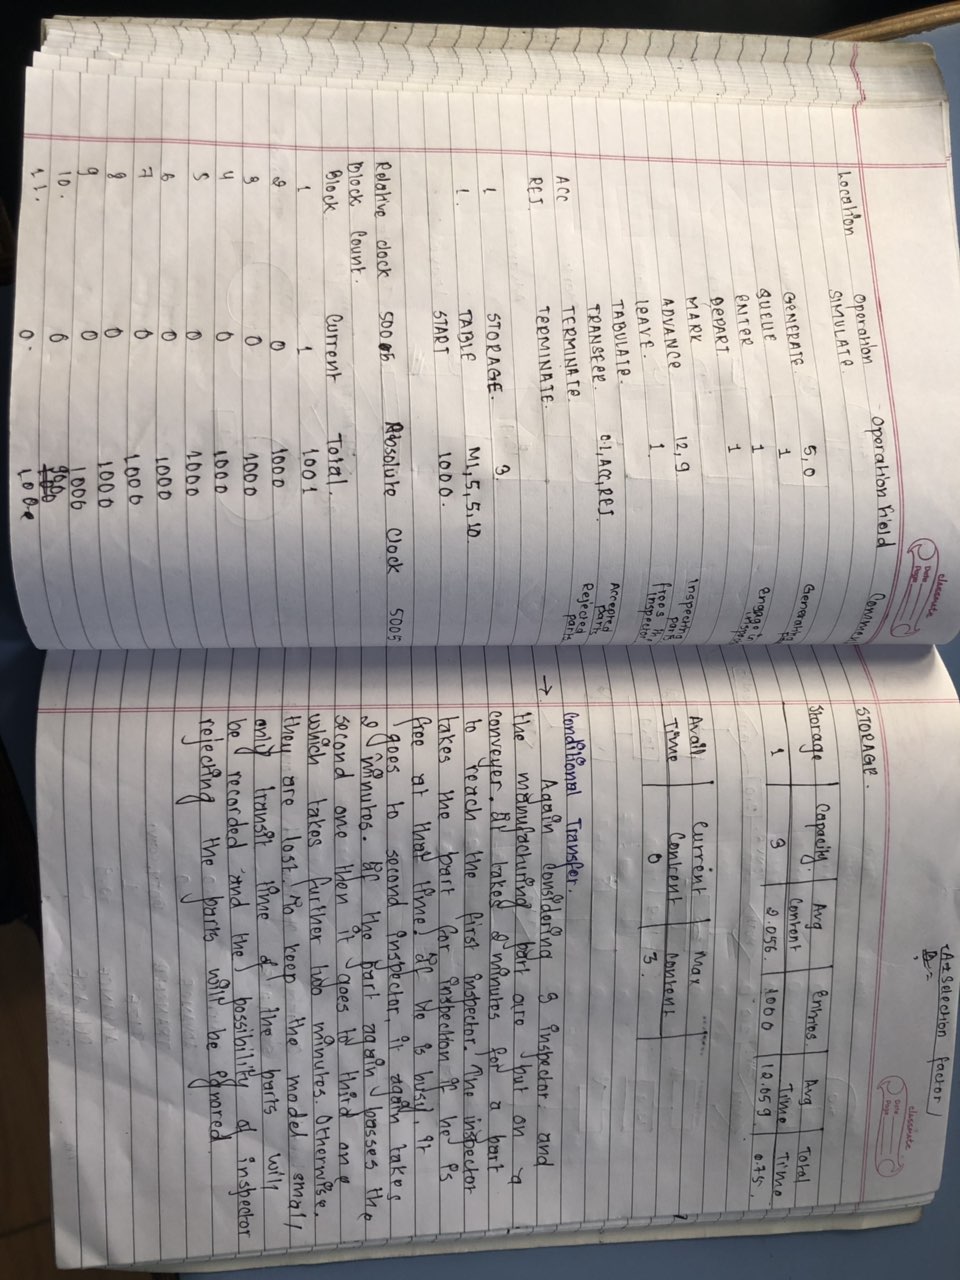 classmate
Date
Page
Location Operation Operation Field Commen
SIMULATE.
GENERATE 5,0 Generating
QUEUE 1
ENTER 1 engage
DEPART 1
MARK
ADVANCE 12,9 Inspecting part
LEAVE. 1 frees
Inspector
TABULATE.
TRANSFER 0.1, ACC, REJ. Accepted part
ACC TERMINATE. Rejected part
REJ. TERMINATE.
1 STORAGE. 3
1. TABLE M1, 5, 5, 10
START 1000.
Relative clock 5005 Absolute Clock 5005
Block Count.
Block Current Total.
1 1 1001
2 0 1000
3 0 1000
4 0 1000
5 0 1000
6 0 1000
7 0 1000
8 0 1000
9 0 1000
10. 6
11. 0.
classmate
Date
Page
Selection factor
STORAGE.
Storage Capacity. Avg Content Entries Avg Time Total Time
1 3 2.056. 1000 10.059 0.75.
Avail. Time Current Content Max content
0 3.
Conditional Transfer.
→ Again Considering 3 inspector. and
the manufacturing part are put on a
conveyer. It takes 2 minutes for a part
to reach the first inspector. The inspector
takes the part for inspection if he is
free at that time. If he is busy, it
goes to second inspector, it again takes
2 minutes. If the part again passes the
second one then it goes to third one
which takes further two minutes. Otherwise.
they are lost. To keep the model small,
only transit time of the parts will
be recorded and the possibility of inspector
rejecting the parts will be egnored.